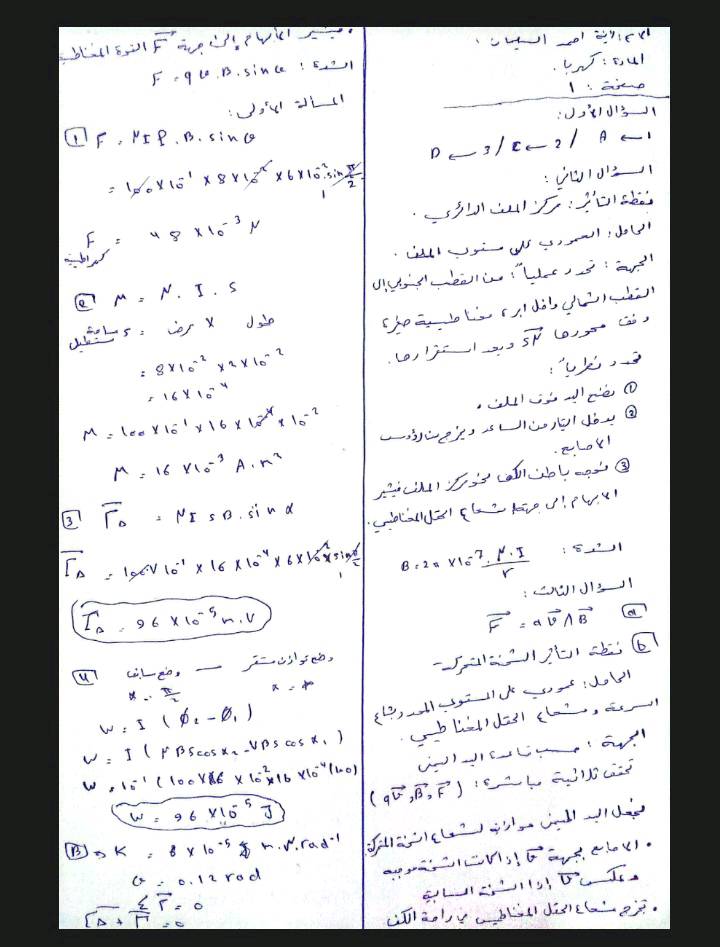 المادة: كهرباء.
صفحة: 1
السؤال الأول:
1 ← A /2 ← C /3 ← D
السؤال الثاني:
نقطة التأثير: مركز الملف الدائري.
الحامل: العمودي على مستوي الملف.
الجهة: تحدد عملياً: من القطب الجنوبي إلى
القطب الشمالي داخل إبرة مغناطيسية صغيرة
وفق محورها SN وبعد استقرارها.
تحدد نظرياً:
① نضع اليد فوق الملف.
② يدخل التيار من الساعد ويخرج من رؤوس
الأصابع.
③ نوجه باطن الكف نحو مركز الملف فيشير
الإبهام إلى جهة شعاع الحقل المغناطيسي.
الشدة: B = 2π × 10⁻⁷ . N.I / r
السؤال الثالث:
a F = qv ∧ B
b نقطة التأثير الشحنة المتحركة
الحامل: عمودي على المستوي المحدد بشعاع
السرعة وشعاع الحقل المغناطيسي.
الجهة: حسب قاعدة اليد اليمنى
تحقق ثلاثية مباشرة: (qv, B, F)
نجعل اليد اليمنى موازية لشعاع الشحنة المتحركة
• الأصابع بجهة v إذا كانت الشحنة موجبة
وبعكس v إذا الشحنة السالبة
• يخرج شعاع الحقل المغناطيسي من راحة الكف
• يشير الإبهام إلى جهة F القوة المغناطيسية
الشدة: F = q v.B.sin θ
المسألة الأولى:
1 F = NIl.B.sin θ
= 100×10⁻¹ × 8×10⁻² × 6×10⁻² . sin π/2
1
F = 48 × 10⁻³ N
كهرطيسية
2 M = N.I.S
طول × عرض = S مساحة مستطيل
= 8×10⁻² × 2×10⁻²
= 16×10⁻⁴
M = 100×10⁻¹ × 16 × 10⁻⁴
M = 16×10⁻³ A.m²
3 Γ_Δ = NISB.sin α
Γ_Δ = 100×10⁻¹ × 16 × 10⁻⁴ × 6×10⁻² × sin π/2
1
Γ_Δ = 96×10⁻⁵ m.N
4 وضع سابق ← وضع توازن مستقر
α = π/2
W = I (Φ₂ - Φ₁)
W = I ( NBS cos α₂ - NBS cos α₁ )
W = 96 × 10⁻⁵ J
B K = 8×10⁻⁵ m.N.rad⁻¹
θ = 0.12 rad
Σ Γ = 0
Γ_Δ + Γ = 0